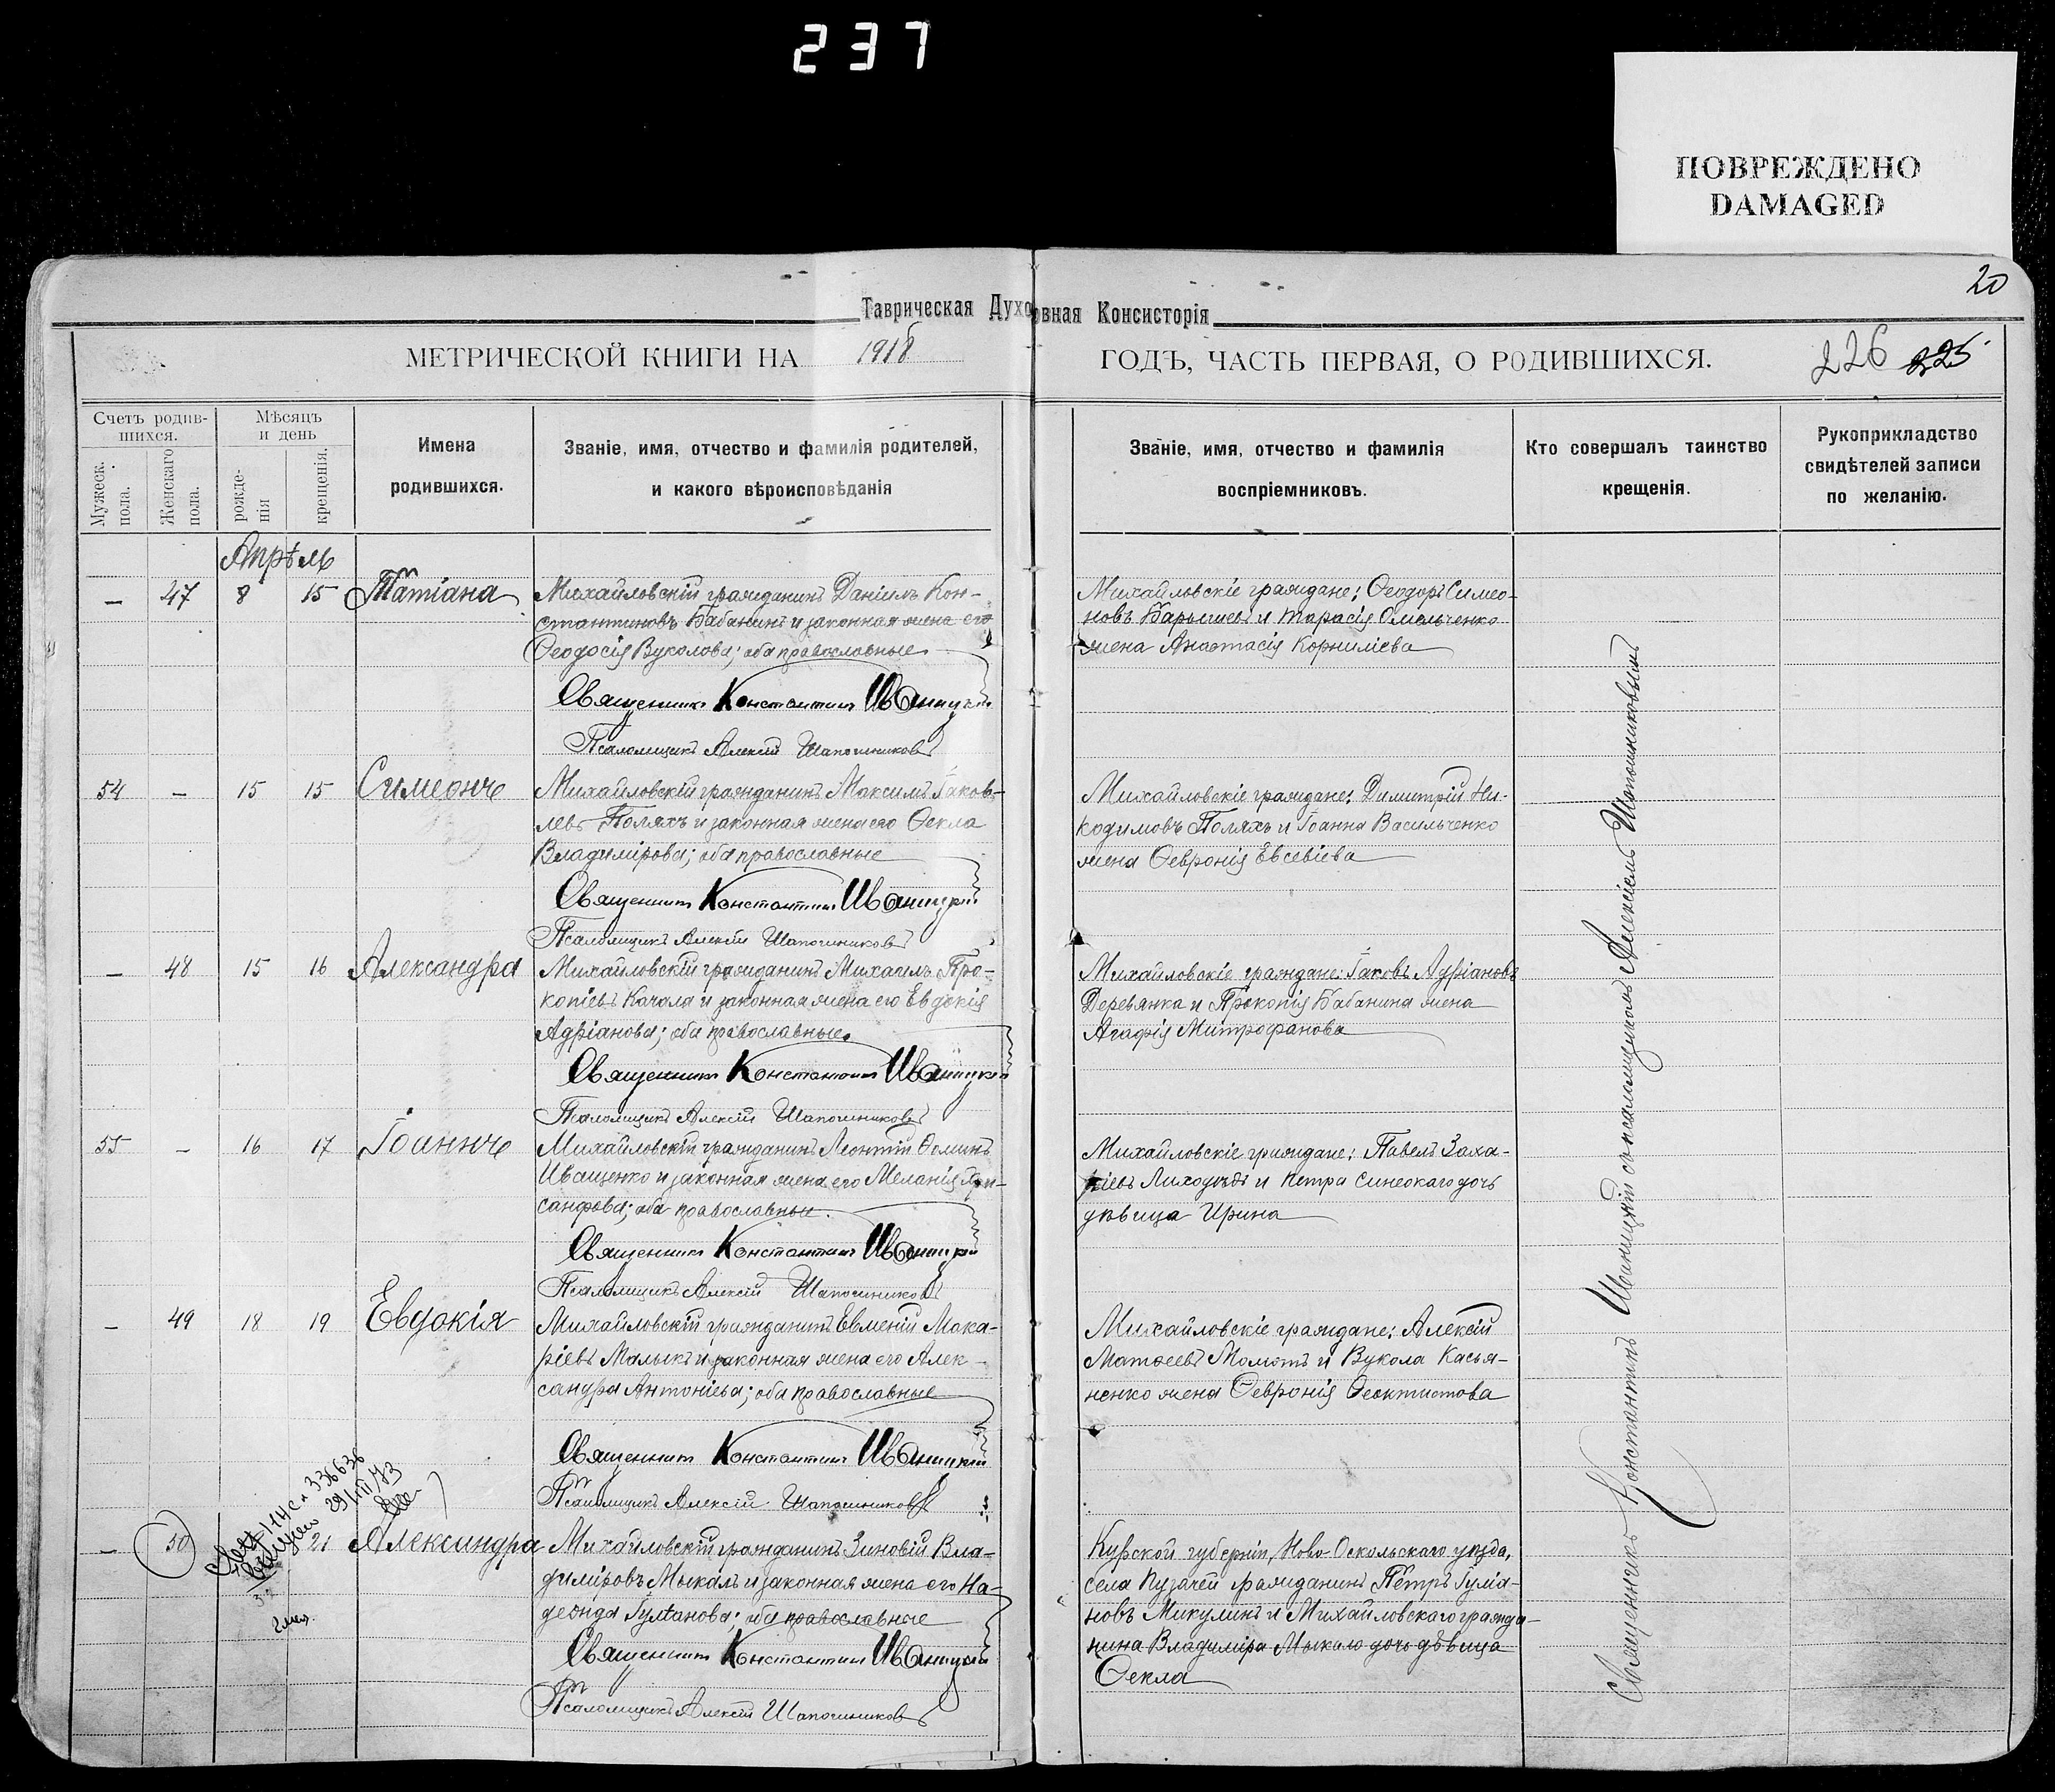 237
ПОВРЕЖДЕНО
DAMAGED
20
Таврическая Духовная Консисторія
МЕТРИЧЕСКОЙ КНИГИ НА 1918 ГОДЪ, ЧАСТЬ ПЕРВАЯ, О РОДИВШИХСЯ.
226 225
Счетъ родив-
шихся.
Мужеск. пола.
Женскаго пола.
Мѣсяцъ
и день
рожде-
нія
крещенія.
Имена
родившихся.
Званіе, имя, отчество и фамилія родителей,
и какого вѣроисповѣданія
Званіе, имя, отчество и фамилія
воспріемниковъ.
Кто совершалъ таинство
крещенія.
Рукоприкладство
свидѣтелей записи
по желанію.
Апрѣль
— 47 8 15 Татіана
Михайловскій гражданинъ Даніилъ Кон-
стантиновъ Бабанинъ и законная жена его
Ѳеодосія Вуколова; оба православные
Священникъ Константинъ Иваницкій
Псаломщикъ Алексій Шапошниковъ
Михайловскіе граждане: Ѳеодоръ Симео-
новъ Барышевъ и Тарасія Омельченко
жена Анастасія Корниліева
54 — 15 15 Симеонъ
Михайловскій гражданинъ Максимъ Іаков-
левъ Поляхъ и законная жена его Ѳекла
Владимірова; оба православные
Священникъ Константинъ Иваницкій
Псаломщикъ Алексій Шапошниковъ
Михайловскіе граждане: Димитрій Ни-
кодимовъ Поляхъ и Іоанна Васильченко
жена Ѳевронія Евсевіева
— 48 15 16 Александра
Михайловскій гражданинъ Михаилъ Про-
копіевъ Качала и законная жена его Евдокія
Адріанова; оба православные.
Священникъ Константинъ Иваницкій
Псаломщикъ Алексій Шапошниковъ
Михайловскіе граждане: Іаковъ Адріановъ
Деревянка и Прокопія Бабанина жена
Агафія Митрофанова
55 — 16 17 Іоаннъ
Михайловскій гражданинъ Леонтій Ѳоминъ
Иващенко и законная жена его Меланія Хри-
санфова; оба православные.
Священникъ Константинъ Иваницкій
Псаломщикъ Алексій Шапошниковъ
Михайловскіе граждане: Павелъ Заха-
ріевъ Лиходѣдъ и Петра Синеокаго дочь
дѣвица Ирина
— 49 18 19 Евдокія
Михайловскій гражданинъ Евменій Мака-
ріевъ Малыкъ и законная жена его Алек-
сандра Антоніева; оба православные
Священникъ Константинъ Иваницкій
Псаломщикъ Алексій Шапошниковъ
Михайловскіе граждане: Алексій
Матѳеевъ Момотъ и Вукола Касья-
ненко жена Ѳевронія Ѳеоктистова
336636
— 50 21 Александра
Михайловскій гражданинъ Зиновій Вла-
диміровъ Мыкалъ и законная жена его На-
дежда Іуліанова; оба православные
Священникъ Константинъ Иваницкій
Псаломщикъ Алексій Шапошниковъ
Курской губерніи, Ново-Оскольскаго уѣзда,
села Пузачей гражданинъ Петръ Іуліа-
новъ Микулинъ и Михайловскаго гражда-
нина Владиміра Мыкало дочь дѣвица
Ѳекла
Священникъ Константинъ Иваницкій съ псаломщикомъ Алексіемъ Шапошниковымъ